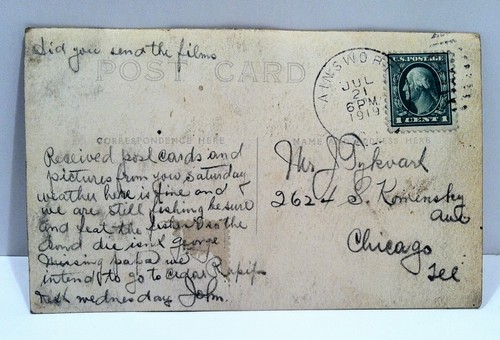 Did you send the films
POST CARD
AINSWOR
JUL
21
6 PM
1919
U.S. POSTAGE
1 CENT 1
CORRESPONDENCE HERE
NAME ADDRESS HERE
Received post cards and
pictures from you Saturday
weather here is fine and
we are still fishing be sure
and feat the fishes so the
dond die isnt George
missing papa we
intend to go to cedar Rapifs
next wednesday John.
Mr J
2624 S. Komensky
Ave
Chicago
Ill